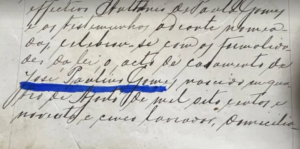 effectivo Antonio de Paula Gomes
e as testemunhas adiante nomea-
das, celebrou-se com as formalida-
des da lei o acto de casamento de
José Paulino Gomes nascido em qua-
tro de Agosto de mil oito centos e
noventa e cinco lavrador, domicilia